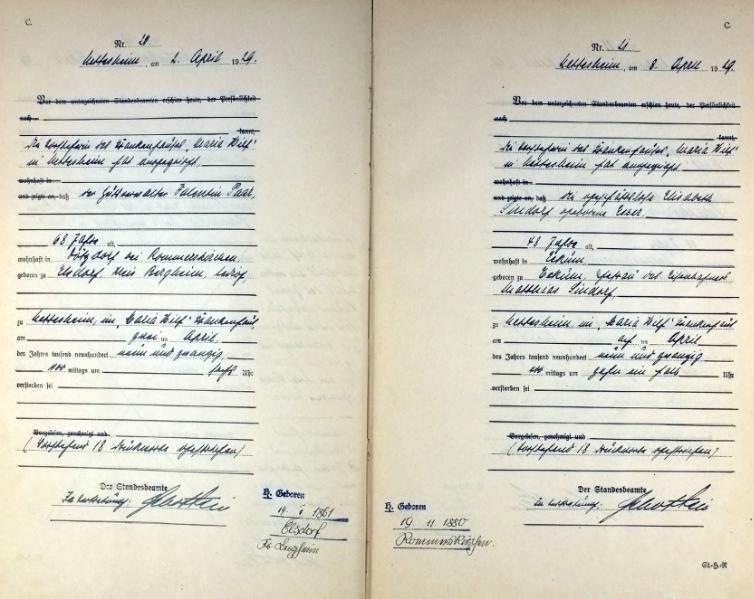 C.
Nr. 20
Nettesheim, am 2. April 1929.
Vor dem unterzeichneten Standesbeamten erschien heute, der Persönlichkeit
nach
kannt,
Die Vorsteherin des Krankenhauses „Maria Hilf"
in Nettesheim hat angezeigt,
wohnhaft in
und zeigte an, daß der Gutsverwalter Valentin
68 Jahre alt,
wohnhaft in bei Rommerskirchen,
geboren zu Elsdorf, Kreis Bergheim, ledig,
zu Nettesheim, im „Maria Hilf" Krankenhaus,
am zwei ten April
des Jahres tausend neunhundert neun und zwanzig,
mittags um sechs Uhr
verstorben sei
Vorgelesen, genehmigt und
(Vorstehend 18 Druckworte gestrichen)
Der Standesbeamte
In Vertretung:
H. Geboren
1861
Elsdorf
C.
Nr. 21
Nettesheim, am 8. April 1929.
Vor dem unterzeichneten Standesbeamten erschien heute, der Persönlichkeit
nach
kannt,
Die Vorsteherin des Krankenhauses „Maria Hilf"
in Nettesheim hat angezeigt,
wohnhaft in
und zeigte an, daß die geschäftslose Elisabeth
Sindorf geborene Esser,
48 Jahre alt,
wohnhaft in Eckum,
geboren zu Eckum, Ehefrau des
Matthias Sindorf,
zu Nettesheim im „Maria Hilf" Krankenhaus
am acht ten April
des Jahres tausend neunhundert neun und zwanzig
mittags um zehn ein halb Uhr
verstorben sei
Vorgelesen, genehmigt und
(Vorstehend 18 Druckworte gestrichen)
Der Standesbeamte
In Vertretung:
H. Geboren
19 11 1880
Rommerskirchen.
St.-H.-R